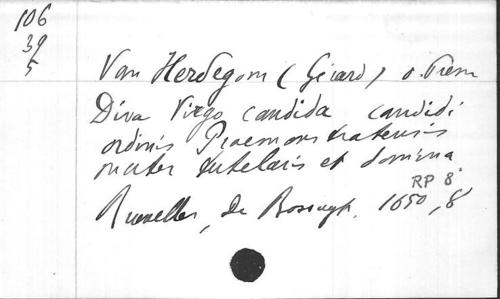 106
39
5
Van Herdegom (Gérard) o. Prem
Diva Virgo candida candidi
ordinis Praemonstratensis
mater tutelaris et domina
RP 8°
Bruxelles, De Bossuyt, 1650, 8°